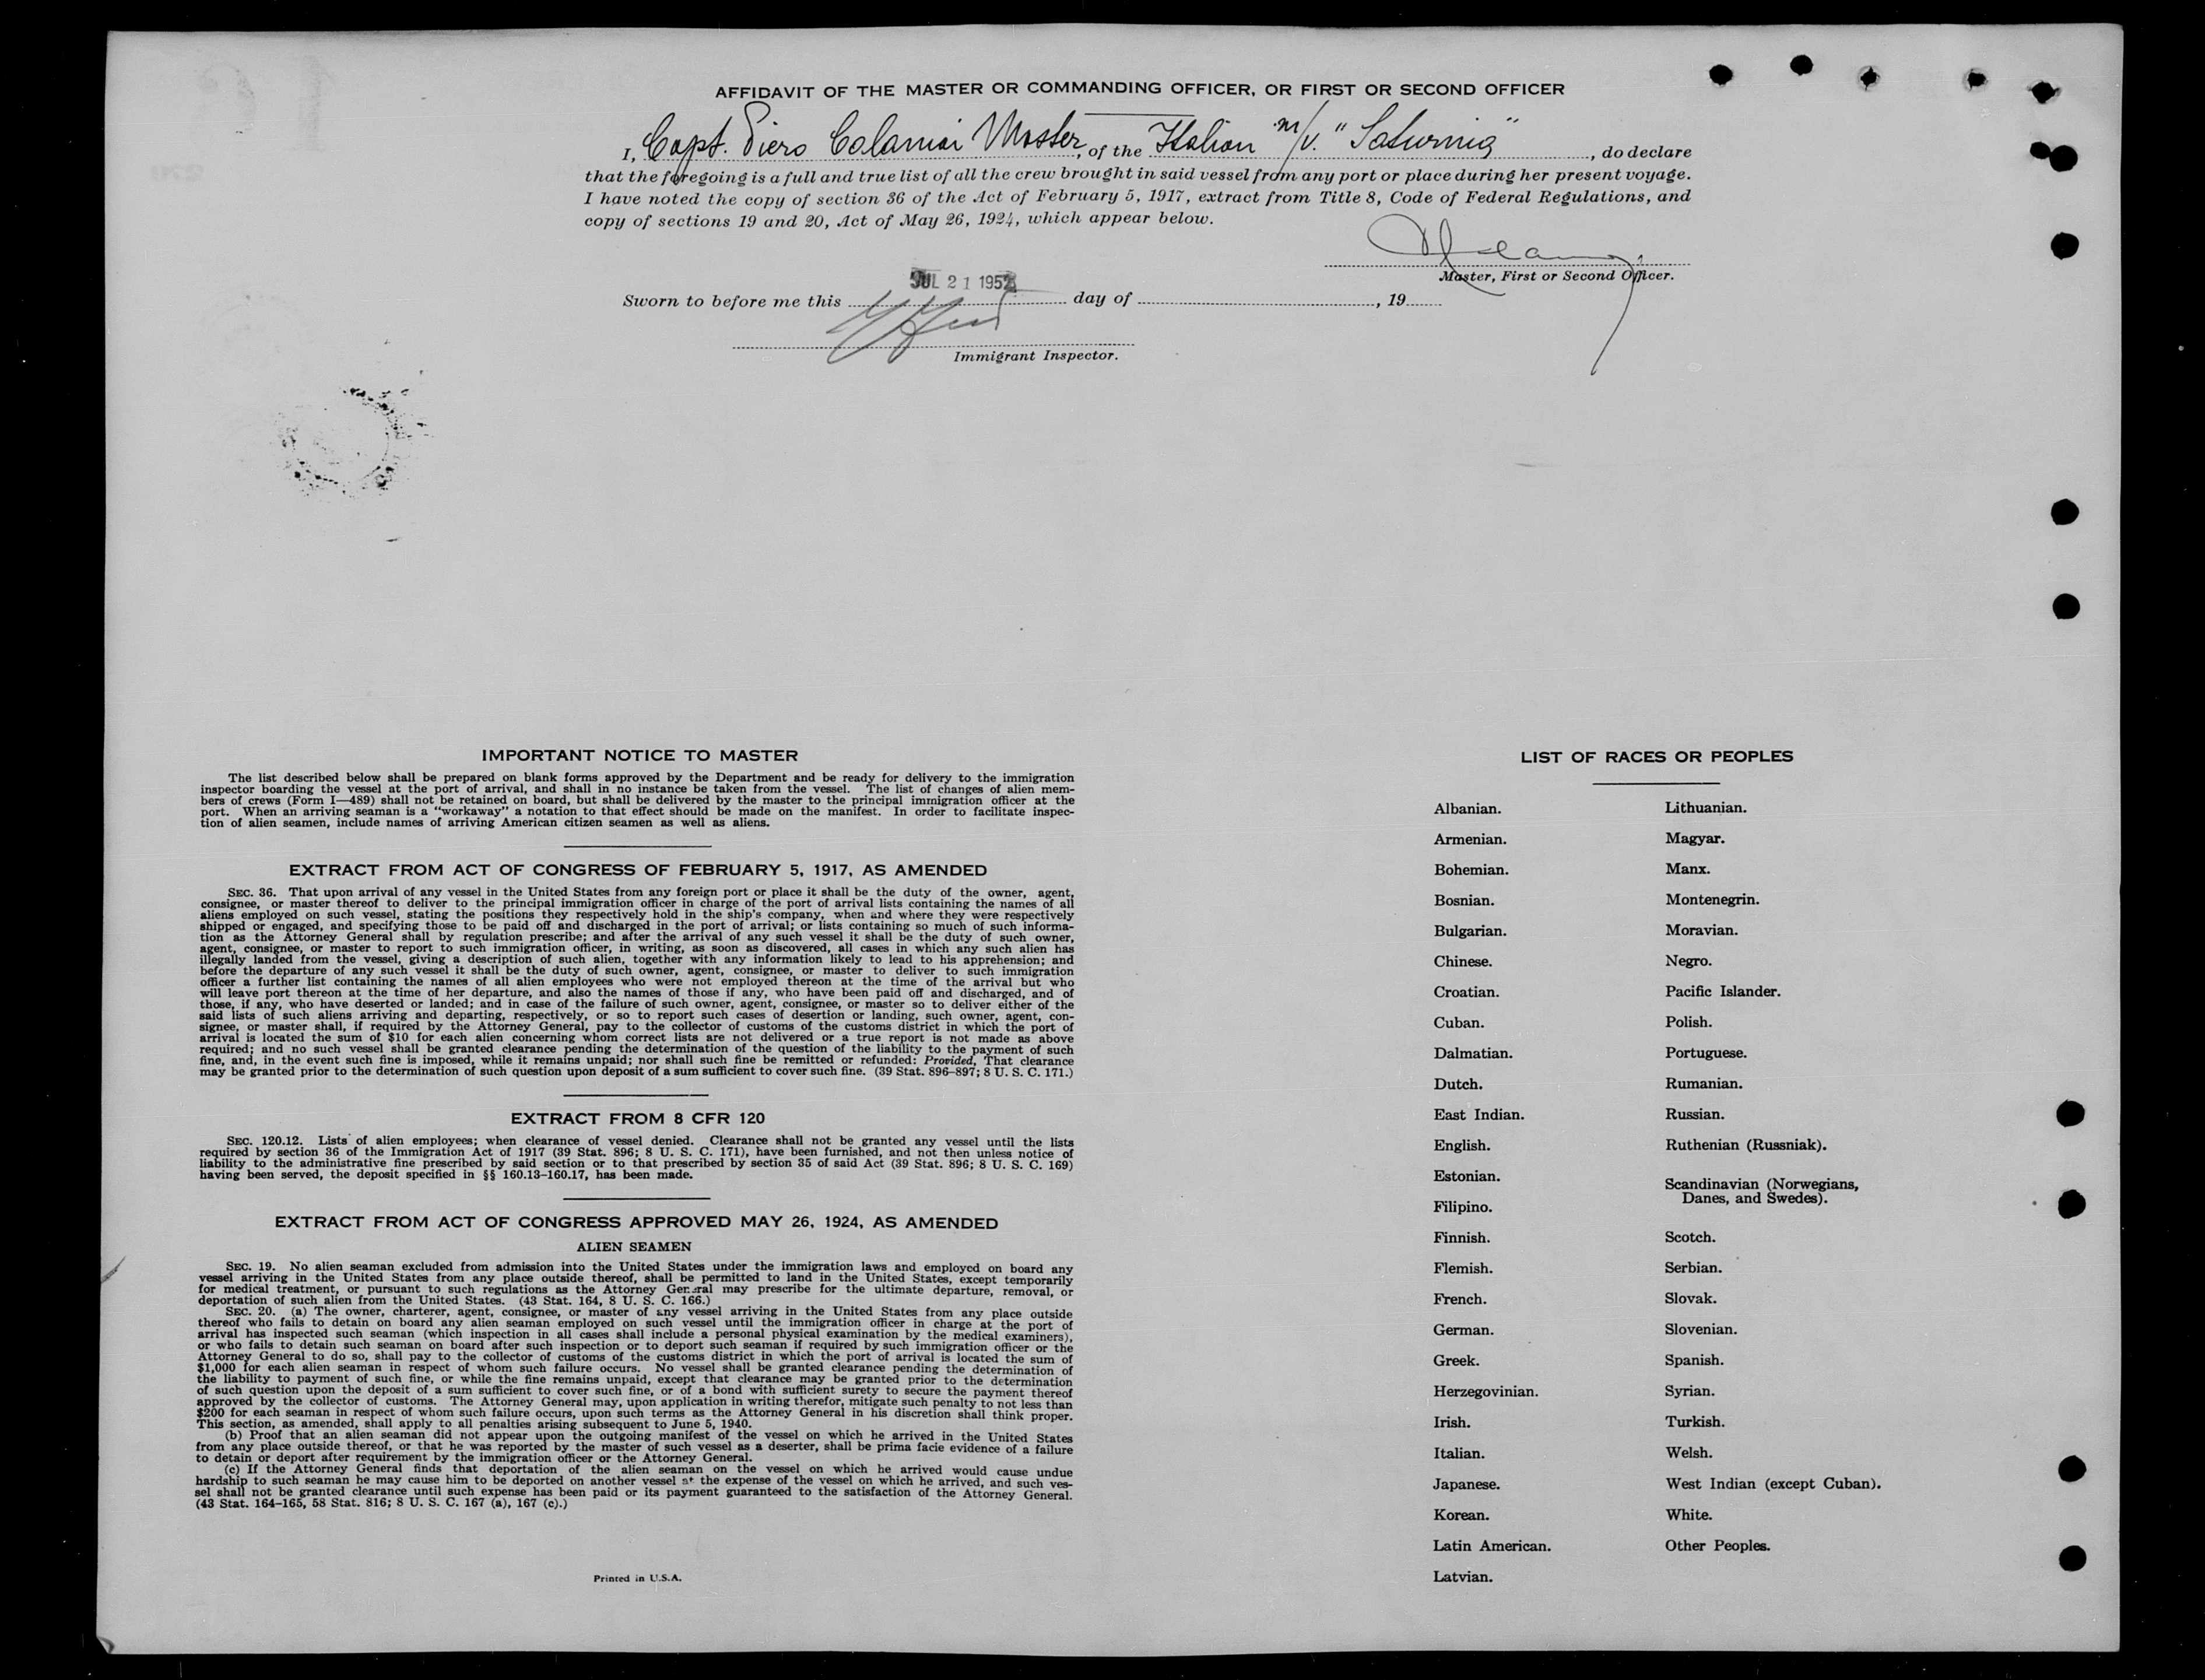 AFFIDAVIT OF THE MASTER OR COMMANDING OFFICER, OR FIRST OR SECOND OFFICER
I, Capt. Piero Calamai Master, of the Italian m/v. "Saturnia", do declare
that the foregoing is a full and true list of all the crew brought in said vessel from any port or place during her present voyage.
I have noted the copy of section 36 of the Act of February 5, 1917, extract from Title 8, Code of Federal Regulations, and
copy of sections 19 and 20, Act of May 26, 1924, which appear below.
Master, First or Second Officer.
JUL 21 1952
Sworn to before me this day of , 19
Immigrant Inspector.
IMPORTANT NOTICE TO MASTER
The list described below shall be prepared on blank forms approved by the Department and be ready for delivery to the immigration
inspector boarding the vessel at the port of arrival, and shall in no instance be taken from the vessel. The list of changes of alien mem-
bers of crews (Form I—489) shall not be retained on board, but shall be delivered by the master to the principal immigration officer at the
port. When an arriving seaman is a "workaway" a notation to that effect should be made on the manifest. In order to facilitate inspec-
tion of alien seamen, include names of arriving American citizen seamen as well as aliens.
EXTRACT FROM ACT OF CONGRESS OF FEBRUARY 5, 1917, AS AMENDED
SEC. 36. That upon arrival of any vessel in the United States from any foreign port or place it shall be the duty of the owner, agent,
consignee, or master thereof to deliver to the principal immigration officer in charge of the port of arrival lists containing the names of all
aliens employed on such vessel, stating the positions they respectively hold in the ship's company, when and where they were respectively
shipped or engaged, and specifying those to be paid off and discharged in the port of arrival; or lists containing so much of such informa-
tion as the Attorney General shall by regulation prescribe; and after the arrival of any such vessel it shall be the duty of such owner,
agent, consignee, or master to report to such immigration officer, in writing, as soon as discovered, all cases in which any such alien has
illegally landed from the vessel, giving a description of such alien, together with any information likely to lead to his apprehension; and
before the departure of any such vessel it shall be the duty of such owner, agent, consignee, or master to deliver to such immigration
officer a further list containing the names of all alien employees who were not employed thereon at the time of the arrival but who
will leave port thereon at the time of her departure, and also the names of those if any, who have been paid off and discharged, and of
those, if any, who have deserted or landed; and in case of the failure of such owner, agent, consignee, or master so to deliver either of the
said lists of such aliens arriving and departing, respectively, or so to report such cases of desertion or landing, such owner, agent, con-
signee, or master shall, if required by the Attorney General, pay to the collector of customs of the customs district in which the port of
arrival is located the sum of $10 for each alien concerning whom correct lists are not delivered or a true report is not made as above
required; and no such vessel shall be granted clearance pending the determination of the question of the liability to the payment of such
fine, and, in the event such fine is imposed, while it remains unpaid; nor shall such fine be remitted or refunded: Provided, That clearance
may be granted prior to the determination of such question upon deposit of a sum sufficient to cover such fine. (39 Stat. 896–897; 8 U. S. C. 171.)
EXTRACT FROM 8 CFR 120
SEC. 120.12. Lists of alien employees; when clearance of vessel denied. Clearance shall not be granted any vessel until the lists
required by section 36 of the Immigration Act of 1917 (39 Stat. 896; 8 U. S. C. 171), have been furnished, and not then unless notice of
liability to the administrative fine prescribed by said section or to that prescribed by section 35 of said Act (39 Stat. 896; 8 U. S. C. 169)
having been served, the deposit specified in §§ 160.13–160.17, has been made.
EXTRACT FROM ACT OF CONGRESS APPROVED MAY 26, 1924, AS AMENDED
ALIEN SEAMEN
SEC. 19. No alien seaman excluded from admission into the United States under the immigration laws and employed on board any
vessel arriving in the United States from any place outside thereof, shall be permitted to land in the United States, except temporarily
for medical treatment, or pursuant to such regulations as the Attorney General may prescribe for the ultimate departure, removal, or
deportation of such alien from the United States. (43 Stat. 164, 8 U. S. C. 166.)
SEC. 20. (a) The owner, charterer, agent, consignee, or master of any vessel arriving in the United States from any place outside
thereof who fails to detain on board any alien seaman employed on such vessel until the immigration officer in charge at the port of
arrival has inspected such seaman (which inspection in all cases shall include a personal physical examination by the medical examiners),
or who fails to detain such seaman on board after such inspection or to deport such seaman if required by such immigration officer or the
Attorney General to do so, shall pay to the collector of customs of the customs district in which the port of arrival is located the sum of
$1,000 for each alien seaman in respect of whom such failure occurs. No vessel shall be granted clearance pending the determination of
the liability to payment of such fine, or while the fine remains unpaid, except that clearance may be granted prior to the determination
of such question upon the deposit of a sum sufficient to cover such fine, or of a bond with sufficient surety to secure the payment thereof
approved by the collector of customs. The Attorney General may, upon application in writing therefor, mitigate such penalty to not less than
$200 for each seaman in respect of whom such failure occurs, upon such terms as the Attorney General in his discretion shall think proper.
This section, as amended, shall apply to all penalties arising subsequent to June 5, 1940.
(b) Proof that an alien seaman did not appear upon the outgoing manifest of the vessel on which he arrived in the United States
from any place outside thereof, or that he was reported by the master of such vessel as a deserter, shall be prima facie evidence of a failure
to detain or deport after requirement by the immigration officer or the Attorney General.
(c) If the Attorney General finds that deportation of the alien seaman on the vessel on which he arrived would cause undue
hardship to such seaman he may cause him to be deported on another vessel at the expense of the vessel on which he arrived, and such ves-
sel shall not be granted clearance until such expense has been paid or its payment guaranteed to the satisfaction of the Attorney General.
(43 Stat. 164–165, 58 Stat. 816; 8 U. S. C. 167 (a), 167 (c).)
Printed in U.S.A.
LIST OF RACES OR PEOPLES
Albanian.
Armenian.
Bohemian.
Bosnian.
Bulgarian.
Chinese.
Croatian.
Cuban.
Dalmatian.
Dutch.
East Indian.
English.
Estonian.
Filipino.
Finnish.
Flemish.
French.
German.
Greek.
Herzegovinian.
Irish.
Italian.
Japanese.
Korean.
Latin American.
Latvian.
Lithuanian.
Magyar.
Manx.
Montenegrin.
Moravian.
Negro.
Pacific Islander.
Polish.
Portuguese.
Rumanian.
Russian.
Ruthenian (Russniak).
Scandinavian (Norwegians,
Danes, and Swedes).
Scotch.
Serbian.
Slovak.
Slovenian.
Spanish.
Syrian.
Turkish.
Welsh.
West Indian (except Cuban).
White.
Other Peoples.